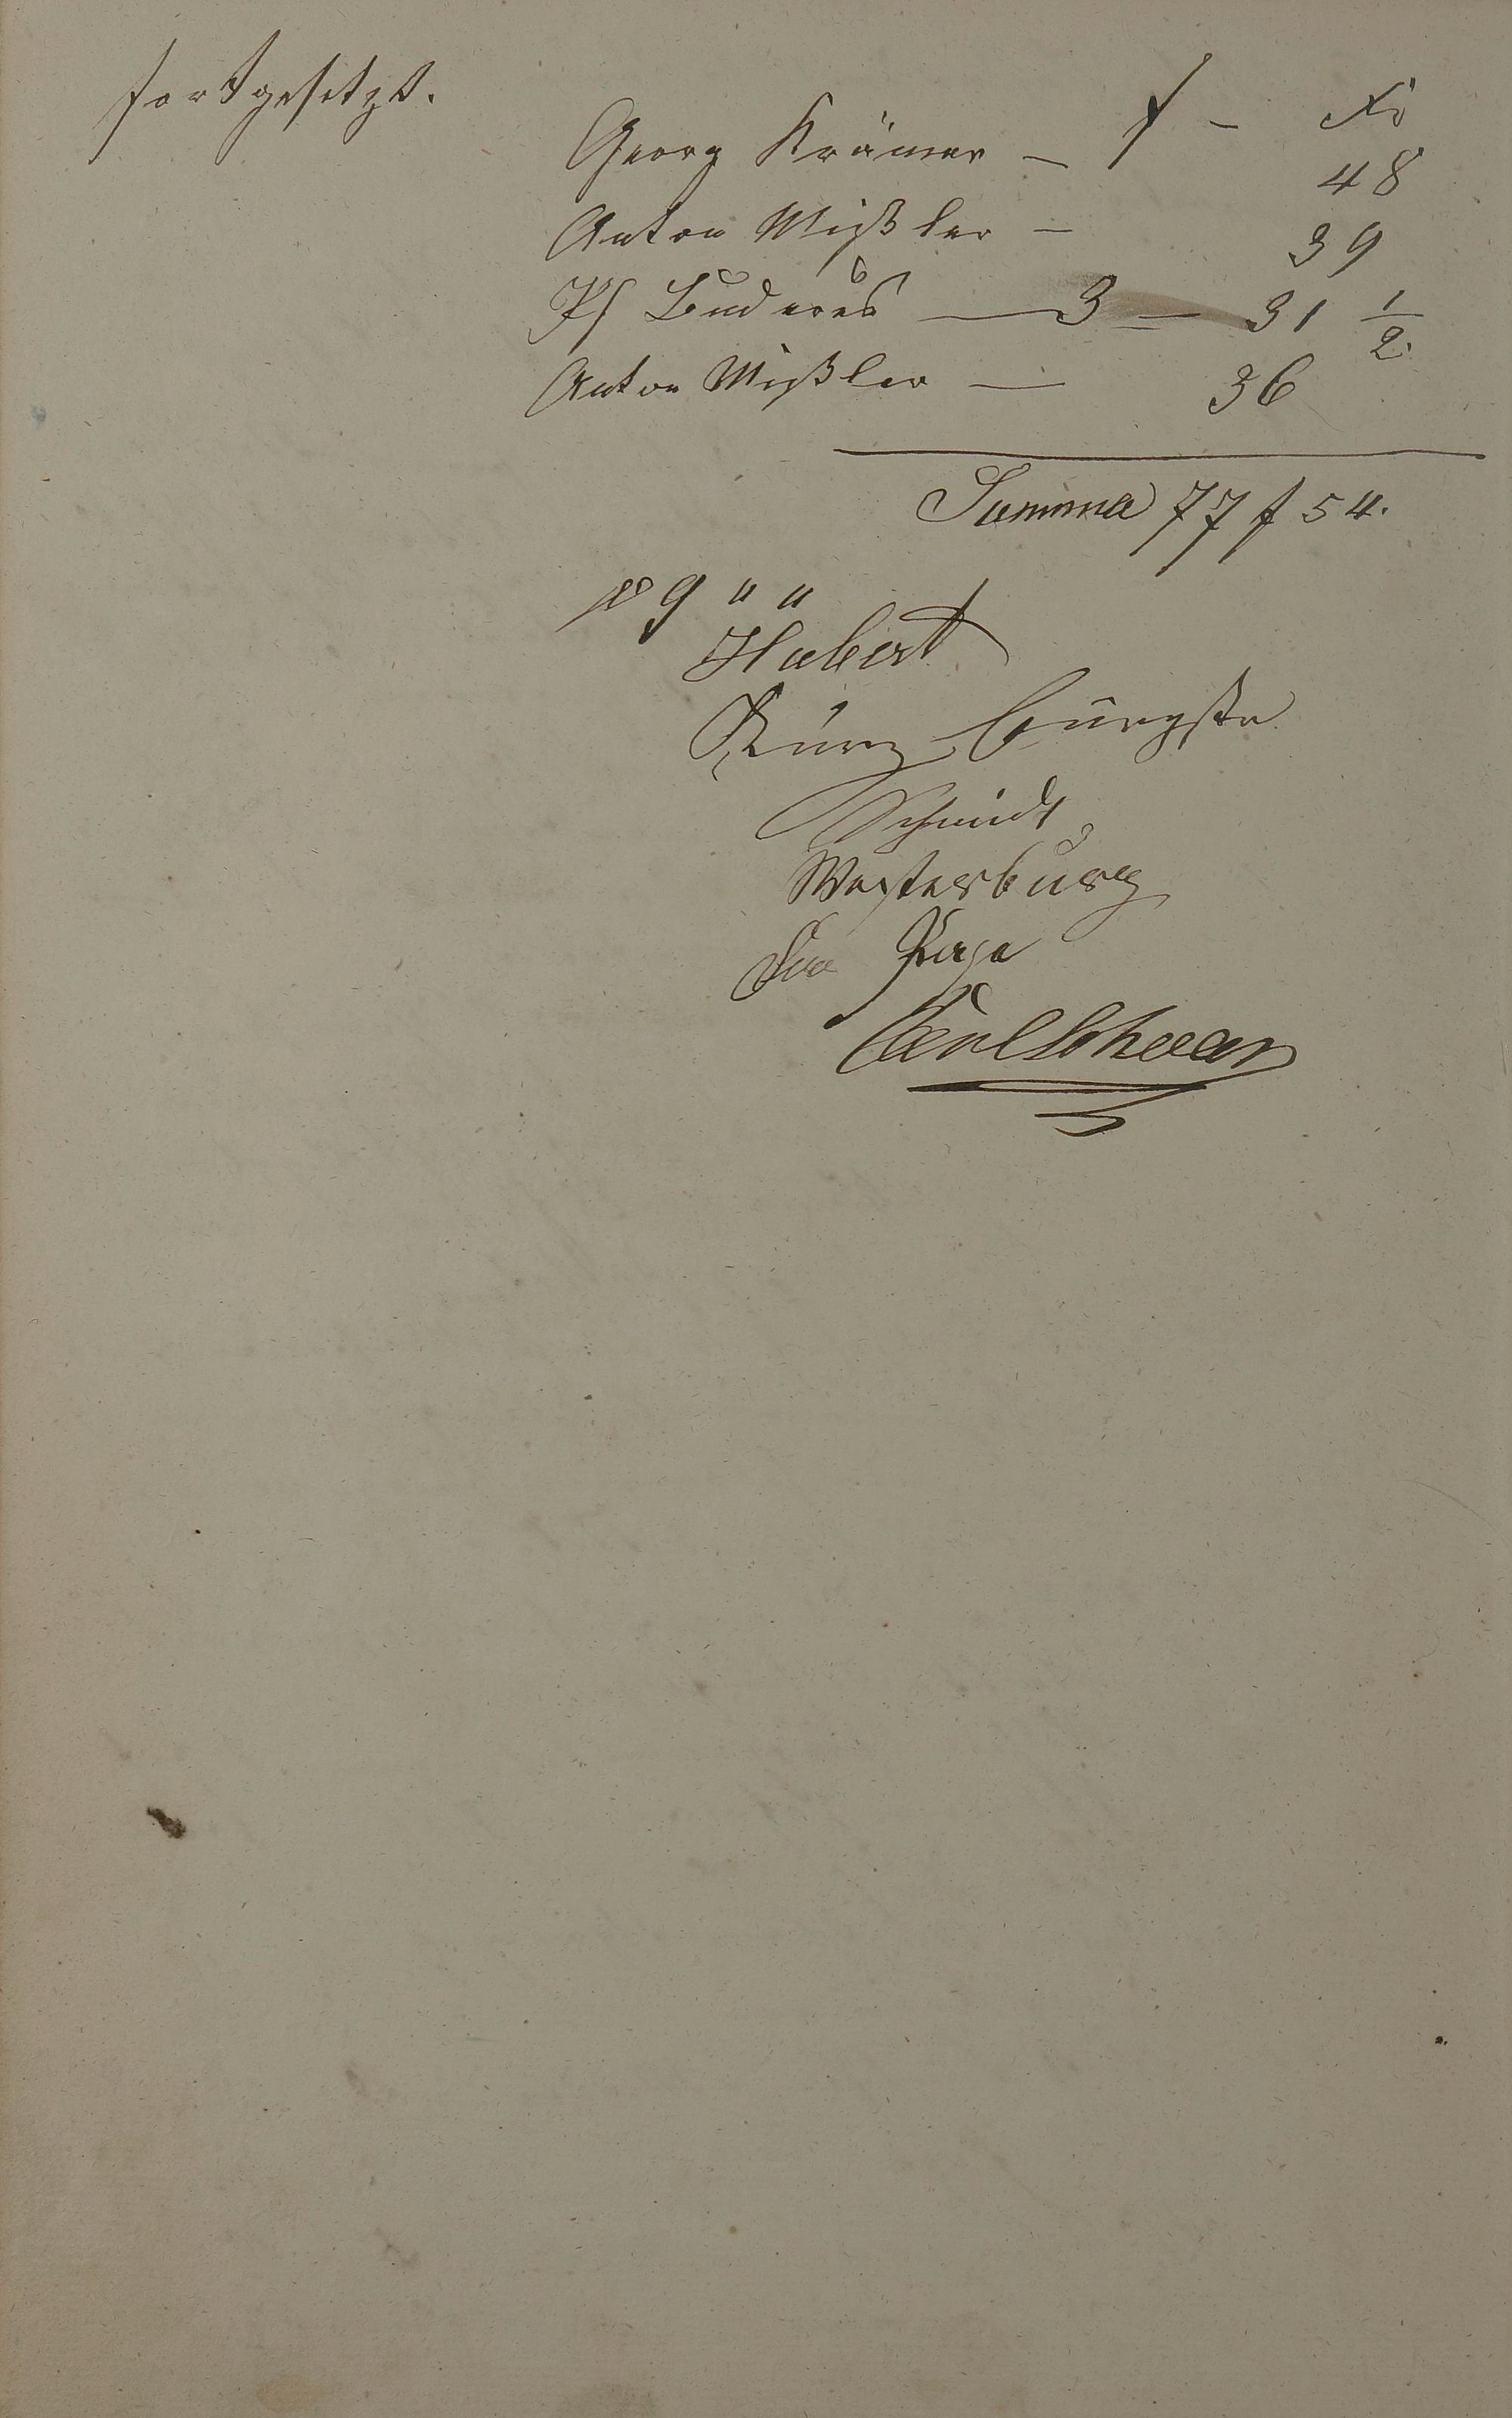 fortgesetzt.
f – Xr
Georg Krämer – 48
Anton Mißler – 39
Pf Buderus — 3 — 31 1/2
Anton Mißler — 36
Summa 77 f 54.
Hubert
Kürz Bürgstr
Schmidt
Westerburg